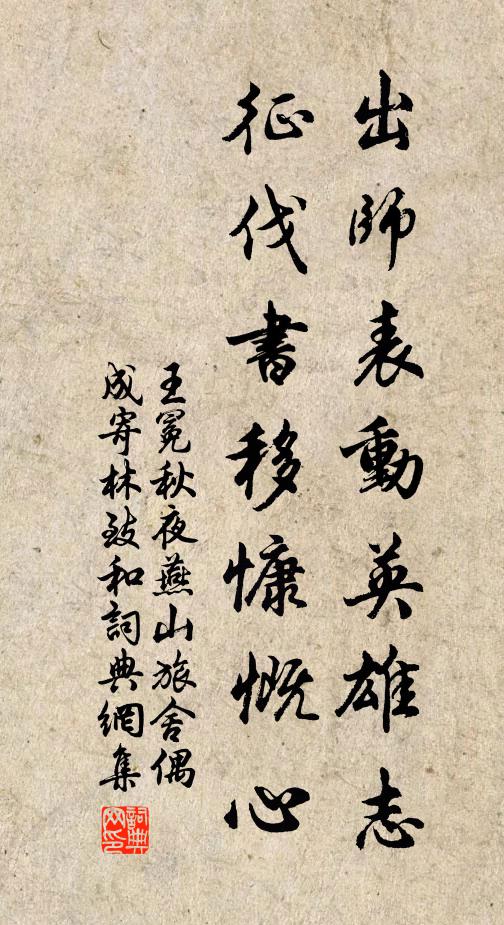 出師表動英雄志
征伐書移慷慨心
王冕秋夜燕山旅舍偶
成寄林致和詞典網集
詞典网印